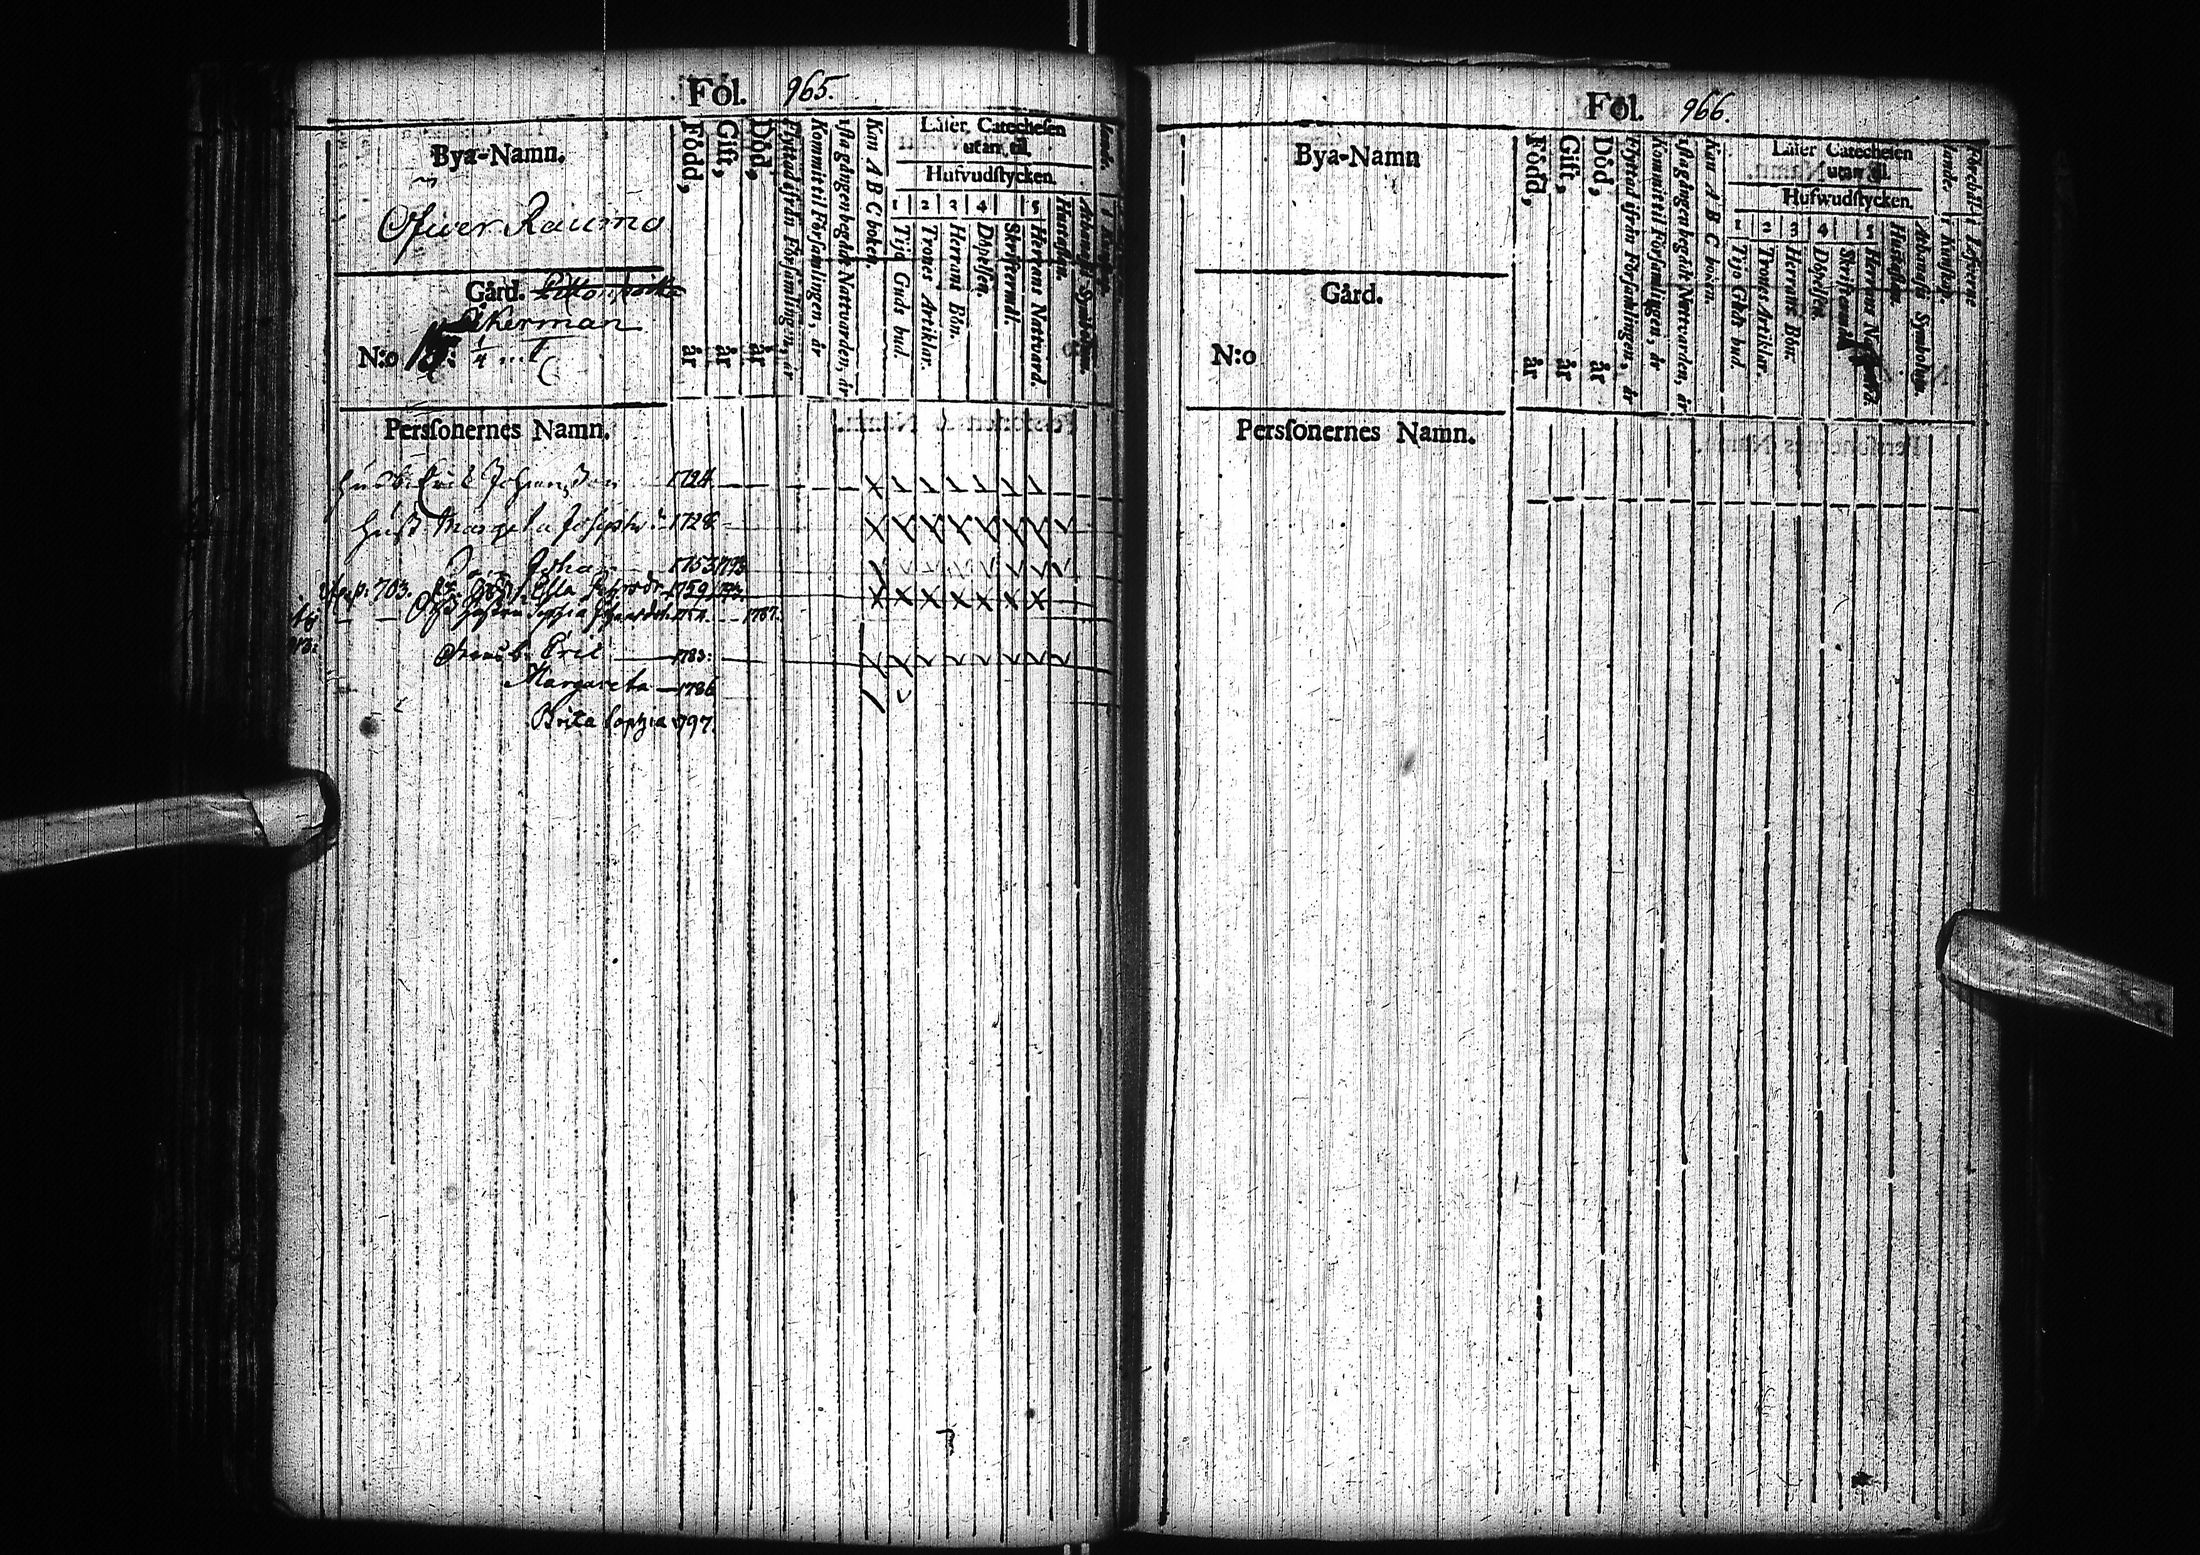 Föl. 965.
Bya-Namn.
Öfwer Rauma
Gård.
Åkerman
N:o 15: 1/4
Född, år
Gift, år
Död, år
Flyttad ifrån Församlingen, år
Kommit til Församlingen, år
1sta gången begådt Nattvarden, år
Kan A B C boken.
Läser Catechesen
utan til.
Hufvudstycken.
1 2 3 4 5
Tijo Guds bud.
Trones Artiklar.
Herrans Bön.
Döpelsen.
Skriftermål.
Herrens Nattvard.
Hustaflan.
Athanasii Symbolum.
Perssohernes Namn.
Husb. Erik Johansson 1724
Hust Margeta Josephsd 1728
Son Johan 1753 1793
p. 703. 1759
Sophia 1754 1787.
Erik 1783.
Margareta 1786
Brita Sophia 1797.
Föl. 966.
Bya-Namn
Gård.
N:o
Född, år
Gift, år
Död, år
Flyttad ifrån Församlingen, år
Kommit til Församlingen, år
1sta gången begådt Nattvarden, år
Kan A B C boken.
Läser Catechesen
utan til.
Hufwudstycken.
1 2 3 4 5
Tijo Guds bud.
Trones Artiklar.
Herrans Bön.
Döpelsen.
Hustaflan.
Athanasii Symbolum.
Kunskap.
Perssonernes Namn.